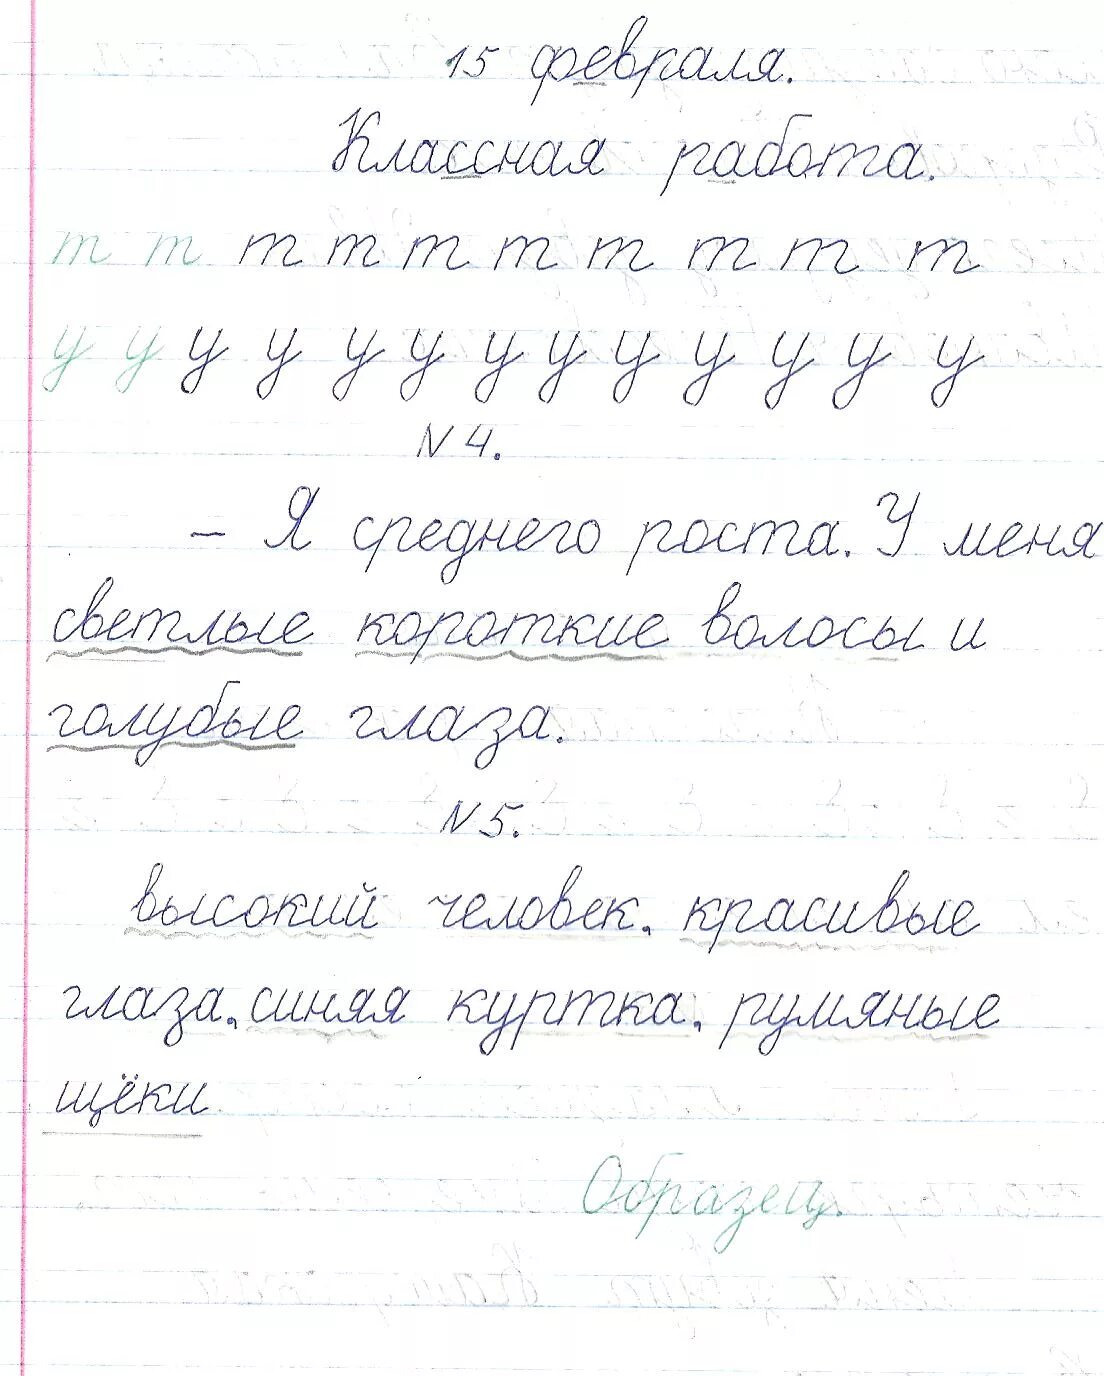 15 февраля.
Классная работа.
т т т т т т т т т т
у у у у у у у у у у у у у
N 4.
– Я среднего роста. У меня
светлые короткие волосы и
голубые глаза.
N 5.
высокий человек, красивые
глаза, синяя куртка, румяные
щёки
Образец.